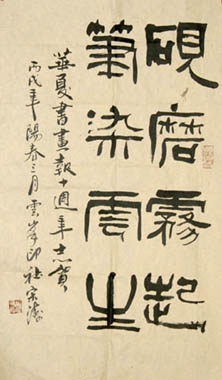 硯磨霧起
筆染雲生
華夏書畫報十週年志賀
丙戌年陽春三月雲峯